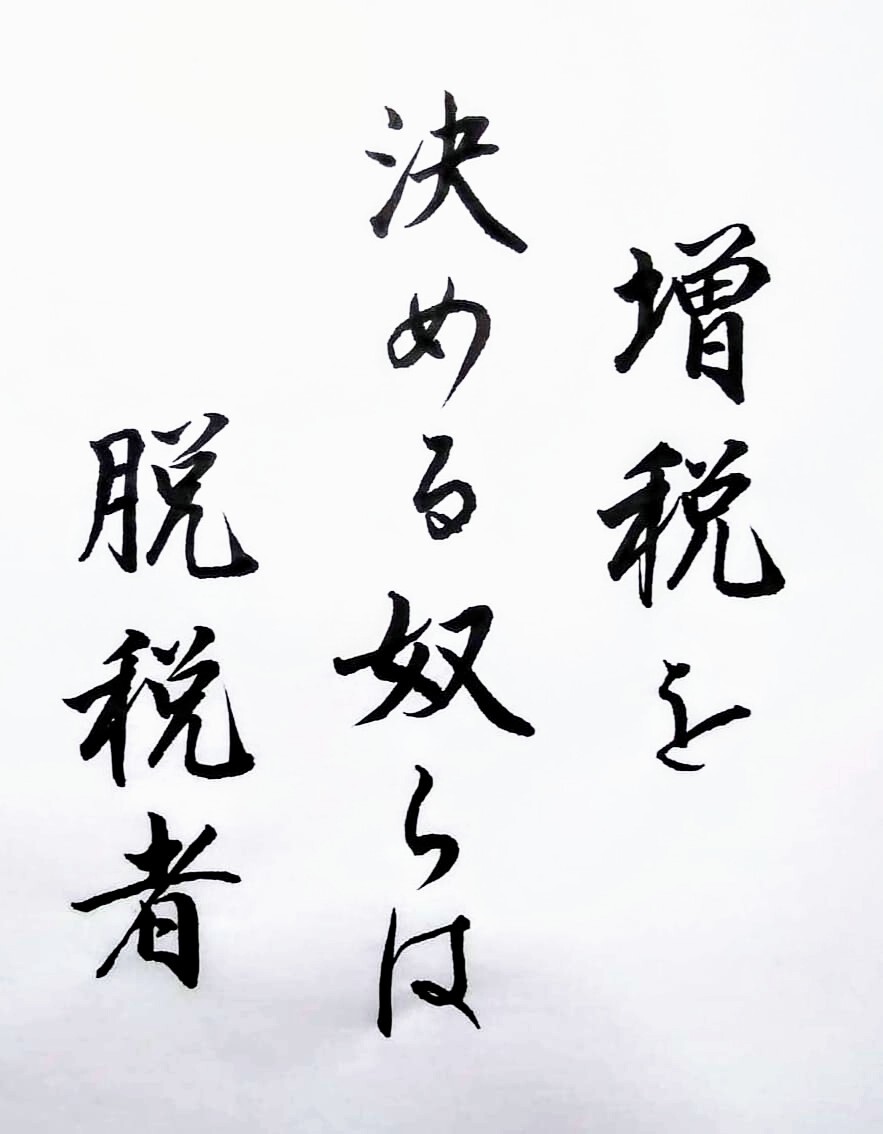 増税を
決める奴らは
脱税者